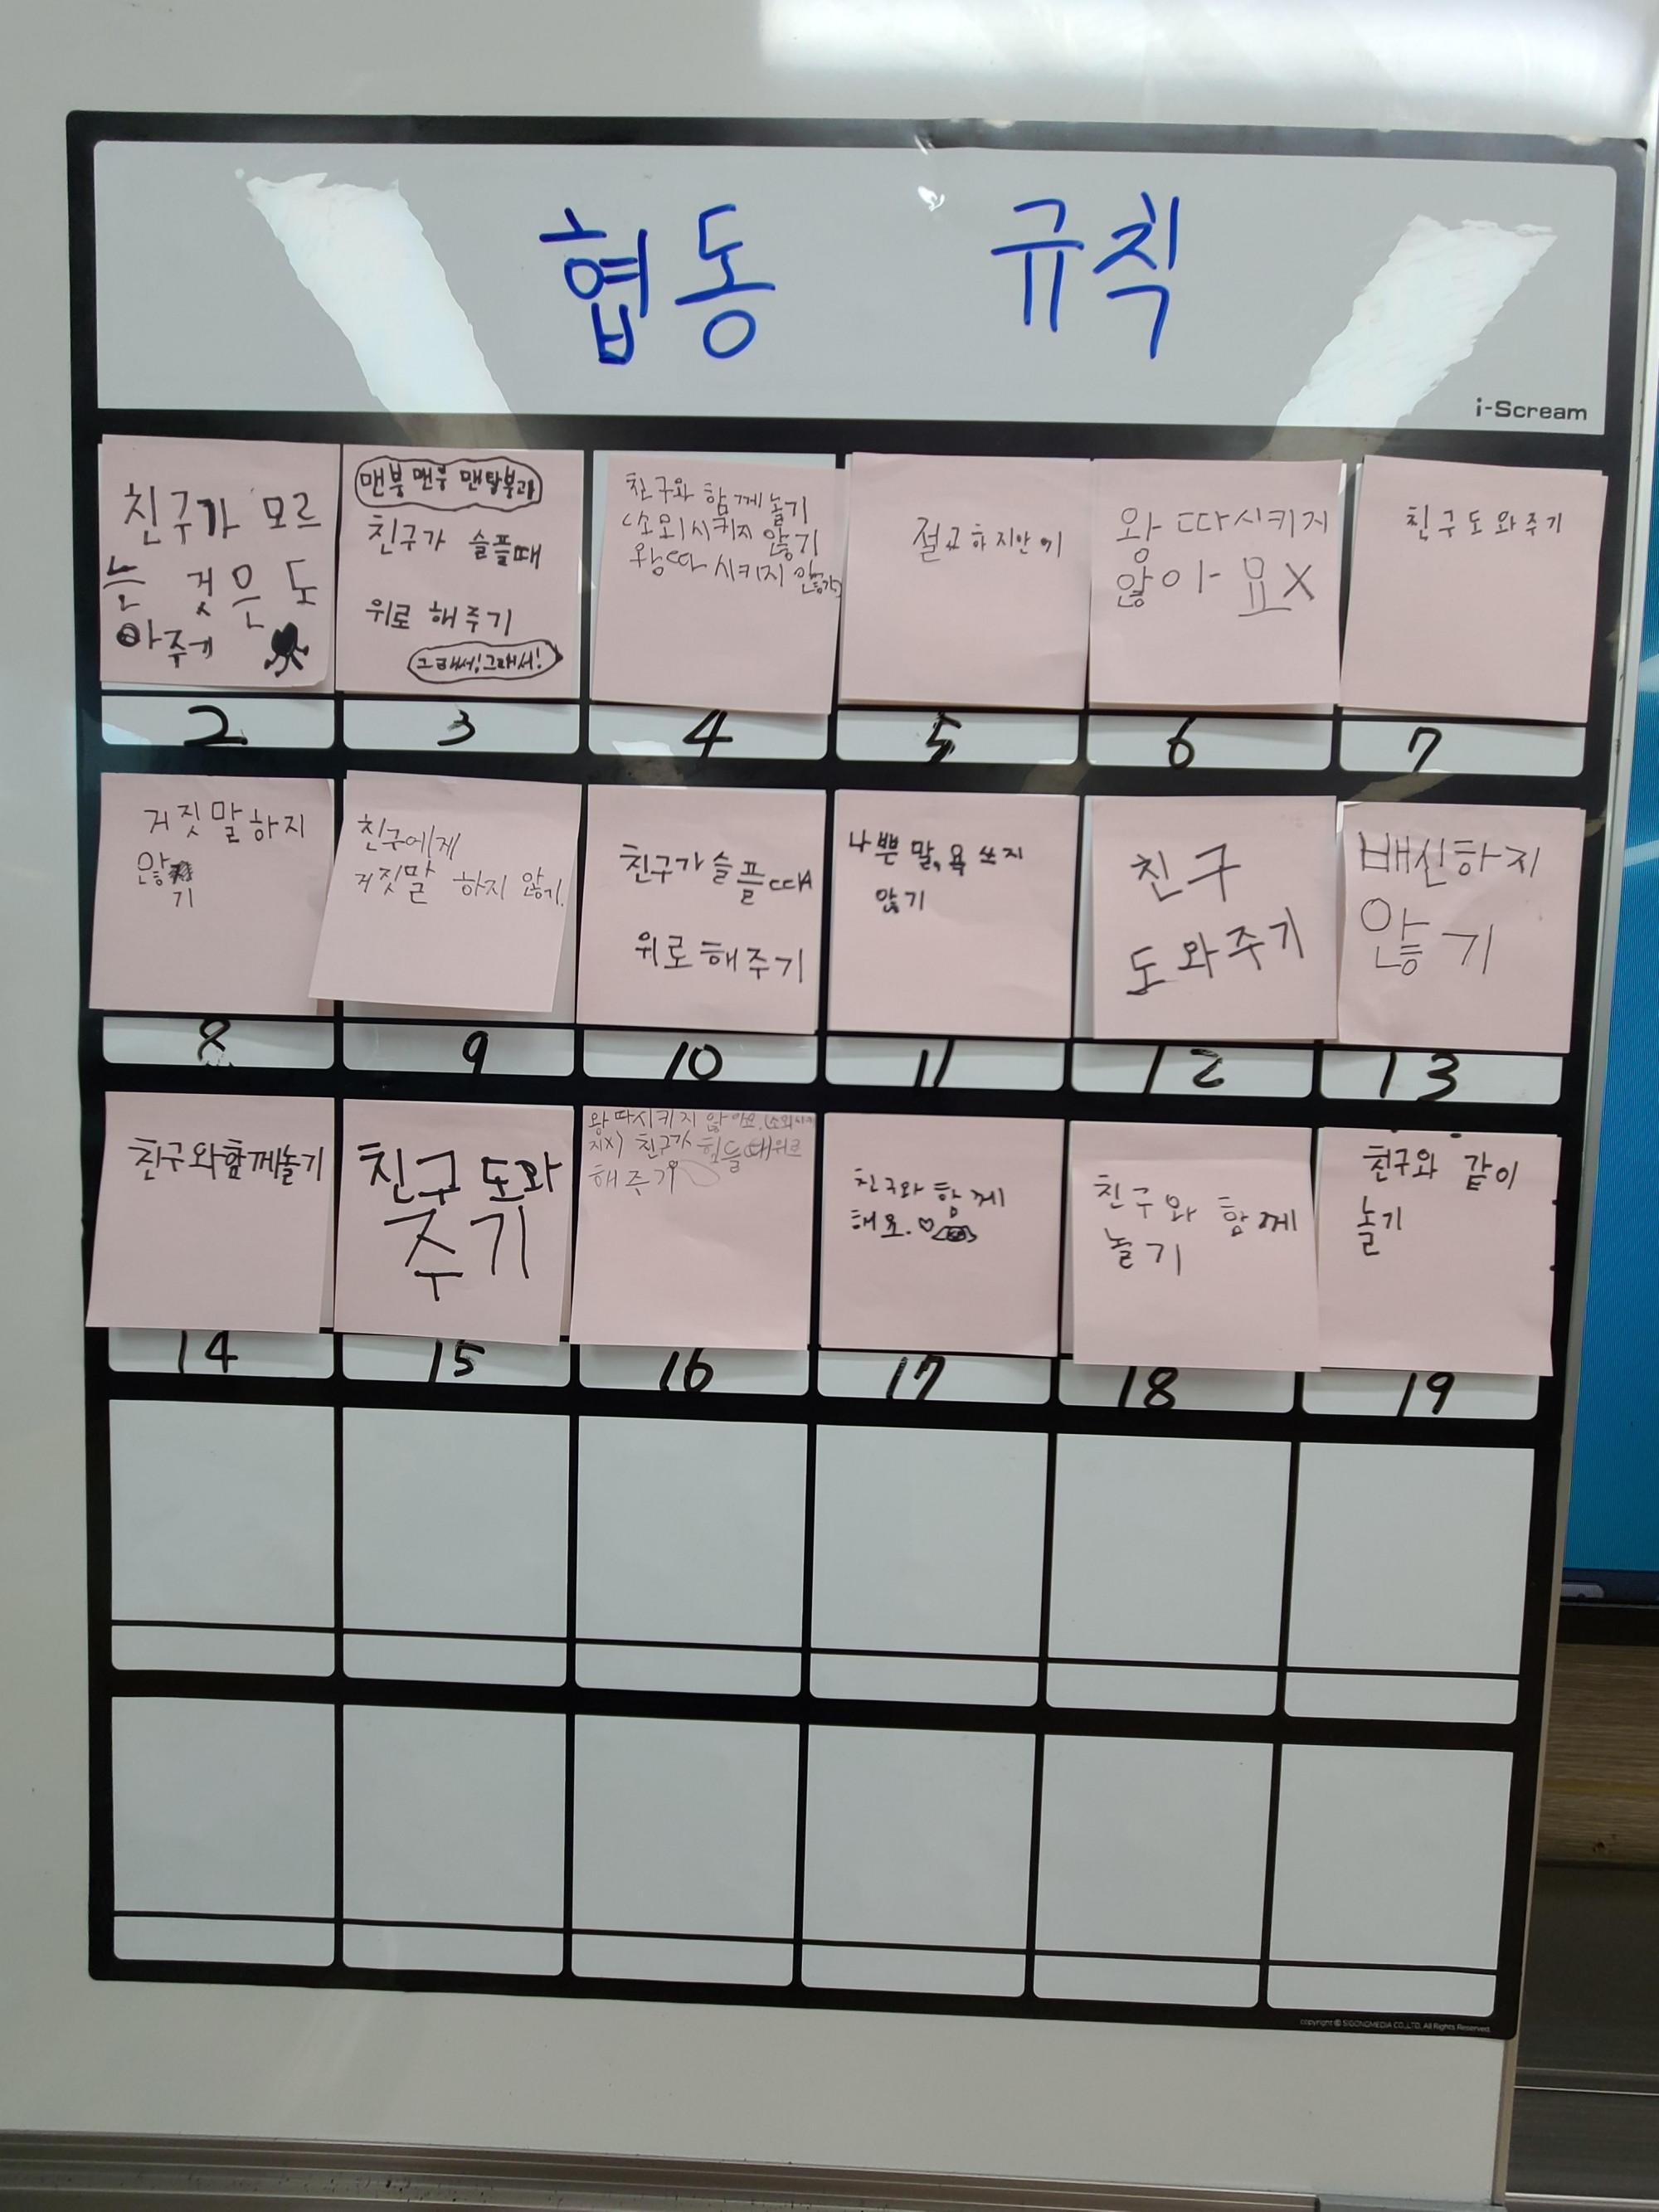 협동 규칙
i-Scream
친구가 모르
는 것은 도
와주기
맨붕 맨붕 맨탈붕괴
친구가 슬플때
위로 해주기
그래서! 그래서!
친구와 함께 놀기
소외시키지 않기
왕따 시키지 않기
절교하지안기
왕따시키지
않아요X
친구도와주기
2
3
4
5
6
7
거짓말하지
않
기
친구에게
거짓말 하지 않기.
친구가슬플때
위로해주기
나쁜말, 욕 쓰지
않기
친구
도와주기
배신하지
않기
8
9
10
11
12
13
친구와함께놀기
친구 도와
주기
왕따시키지 않아요.(소외시키
지X) 친구가 힘들때위로
해주기
친구와 함께
해요.♡
친구와 함께
놀기
친구와 같이
놀기
14
15
16
17
18
19
copyright © SIGONGMEDIA CO.,LTD. All Rights Reserved.